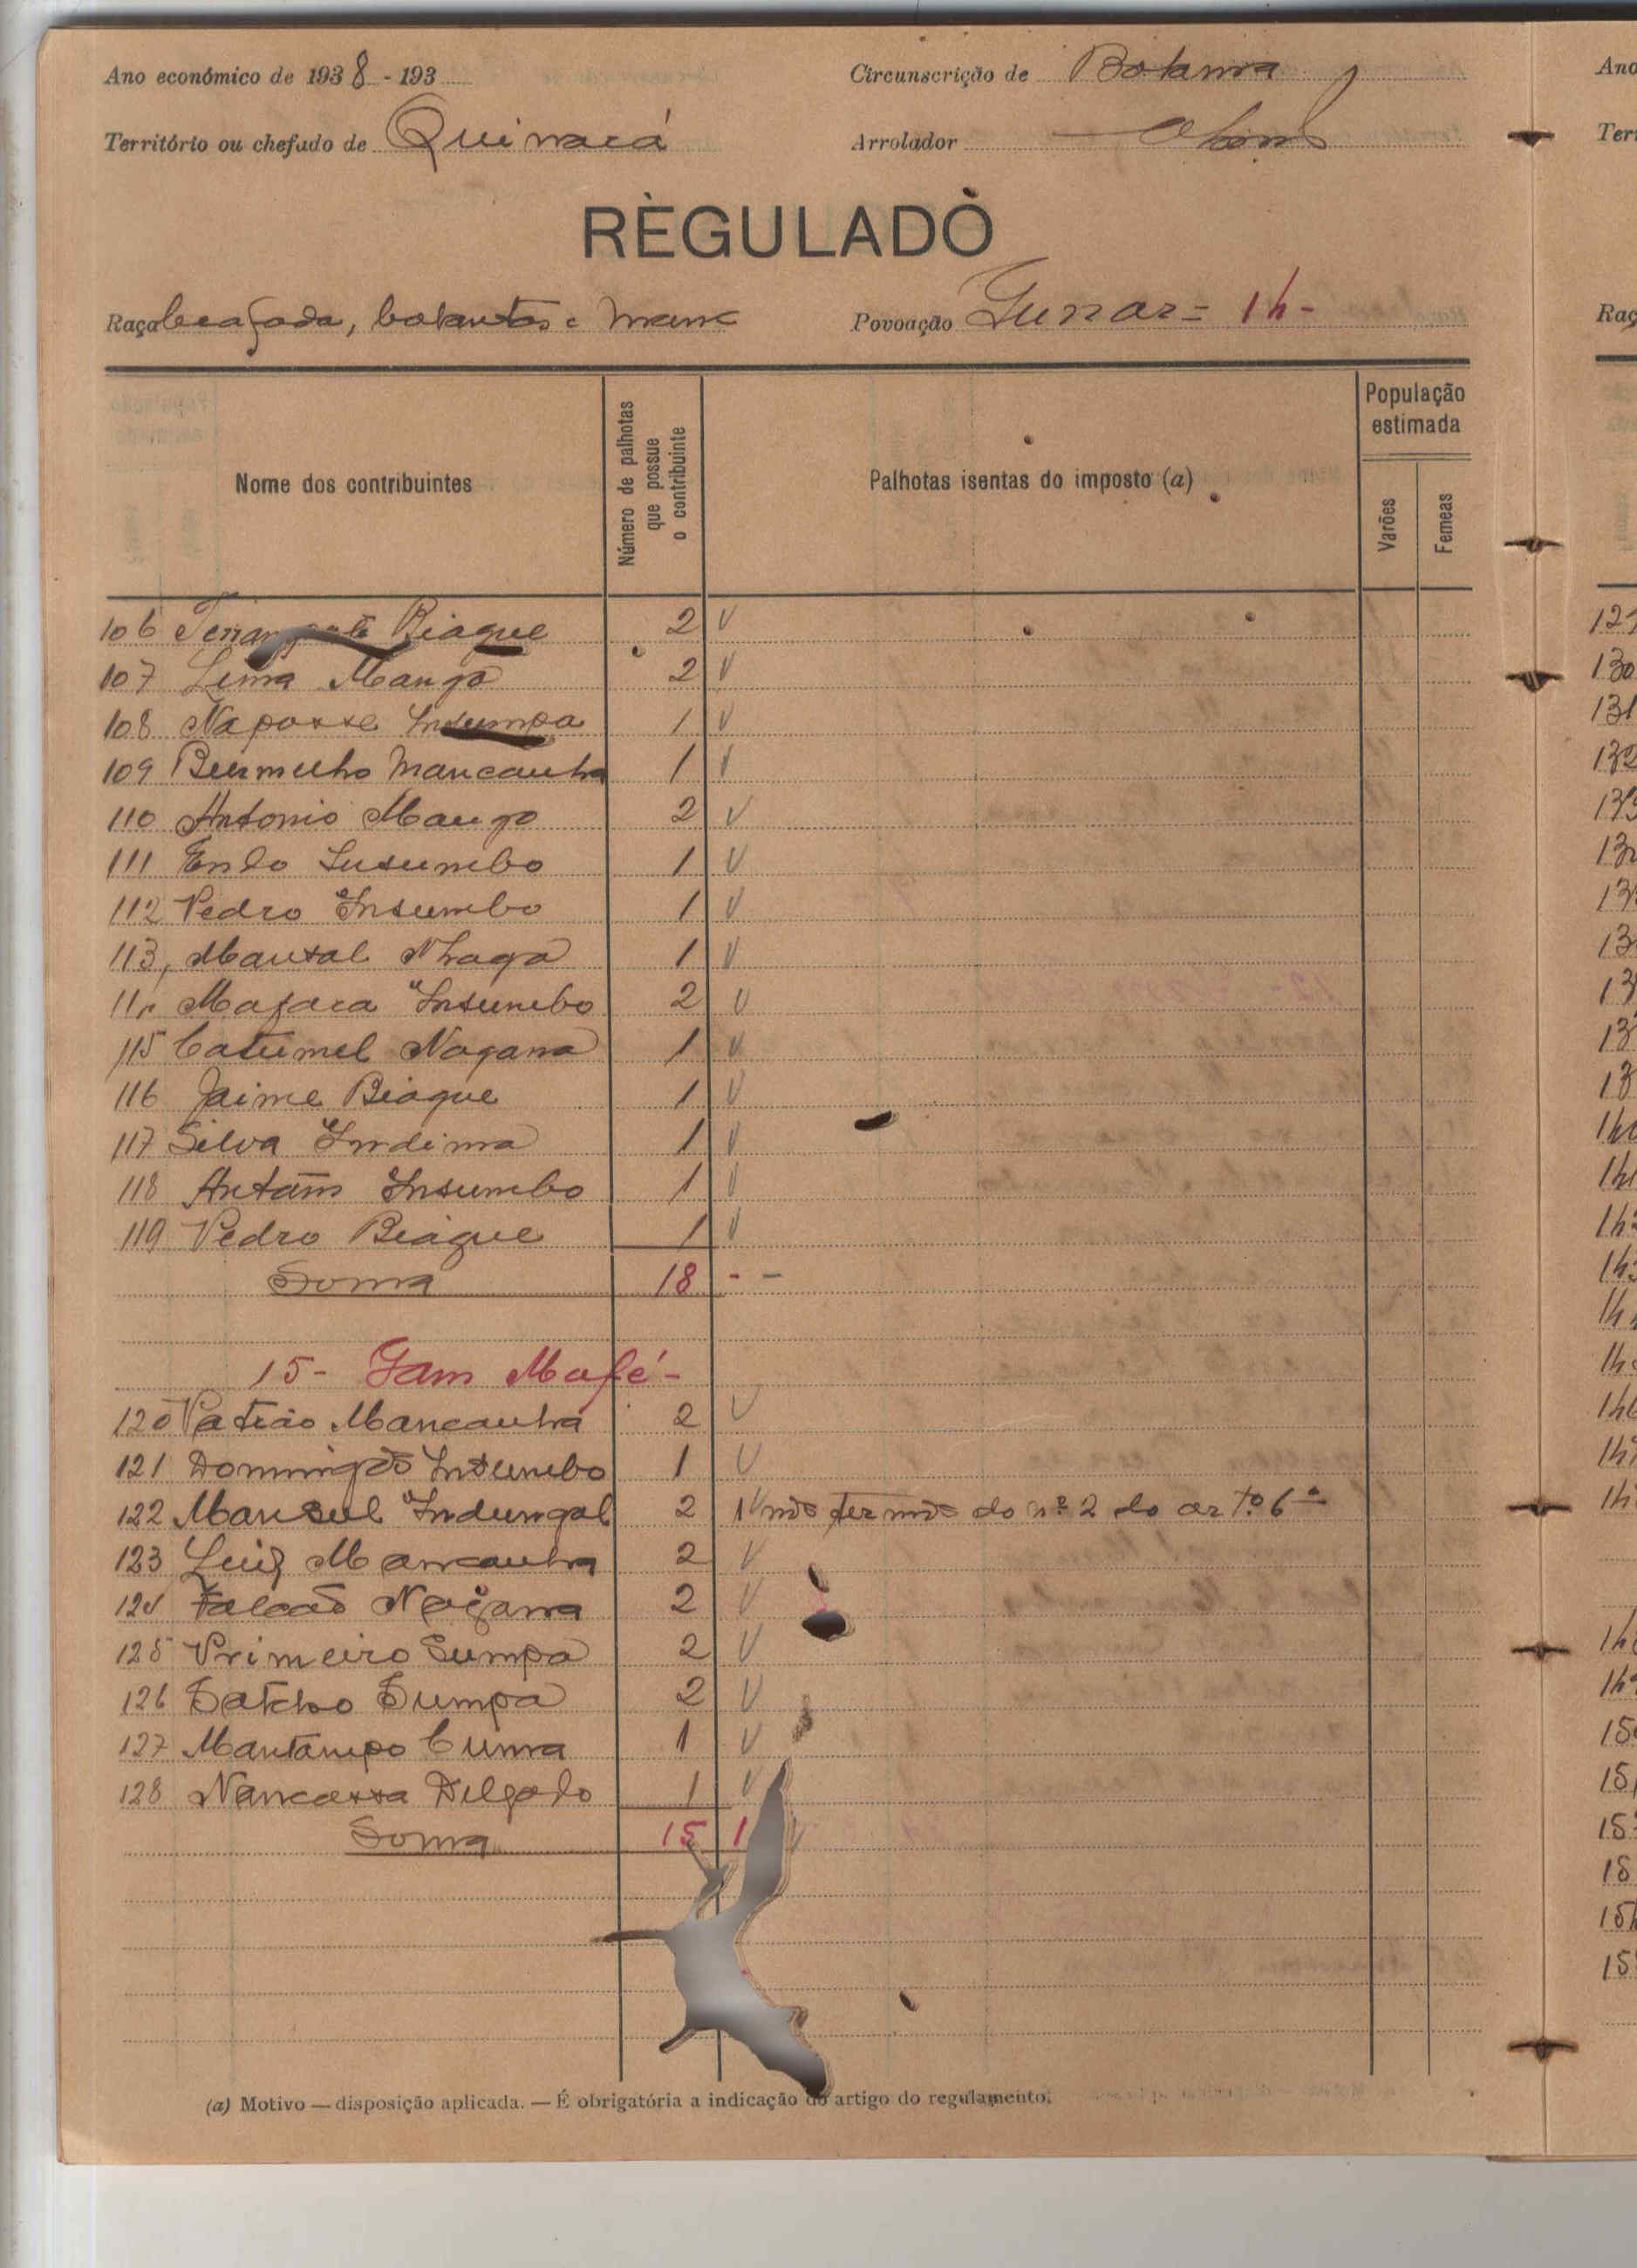 Ano económico de 1938 - 193
Circunscrição de Bolama
Território ou chefado de Quinará
Arrolador
RÈGULADÒ
Raça beafada, balantas e manc
Povoação Gunar = 14 -
Nome dos contribuintes
Número de palhotas que possue o contribuinte
Palhotas isentas do imposto (a)
População estimada
Varões
Femeas
106 Biague 2 V
107 Lima Mango 2 V
108 Naposse Insumpa 1 V
109 Mancanha 1 V
110 Antonio Mango 2 V
111 Insumbo 1 V
112 Pedro Insumbo 1 V
113, Nhaga 1 V
114 Mafaca Insumbo 2 V
115 Catumel Nagana 1 V
116 Jaime Biague 1 V
117 Silva Indima 1 V
118 Insumbo 1 V
119 Pedro Biague 1 V
Soma 18 - -
15 - Gam Mafé -
120 Patrão Mancanha 2 V
121 Domingos Insumbo 1 V
122 Manuel Indungal 2 1 V nos termos do nº 2 do artº 6º
123 Luiz Mancanha 2 V
124 Falcão Nagana 2 V
125 Primeiro Sumpa 2 V
126 Satcho Sumpa 2 V
127 Mantampo Cunra 1 V
128 Nancassa Delgado 1 V
Soma 15 1
(a) Motivo — disposição aplicada. — É obrigatória a indicação do artigo do regulamento.